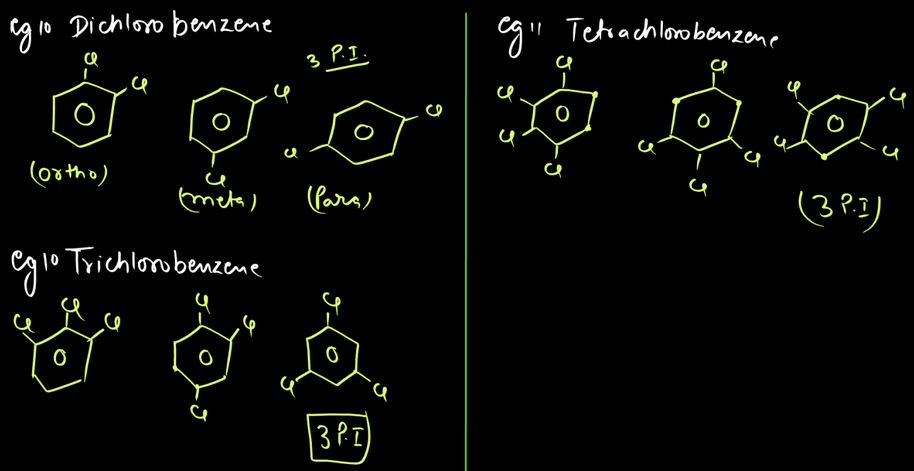 eg 10 Dichlorobenzene
3 P.I.
Cl
Cl
Cl
Cl
Cl
Cl
(ortho)
(meta)
(Para)
eg 10 Trichlorobenzene
Cl
Cl
Cl
Cl
Cl
Cl
Cl
Cl
Cl
3 P.I
eg 11 Tetrachlorobenzene
Cl
Cl
Cl
Cl
Cl
Cl
Cl
Cl
Cl
Cl
Cl
Cl
(3 P.I)